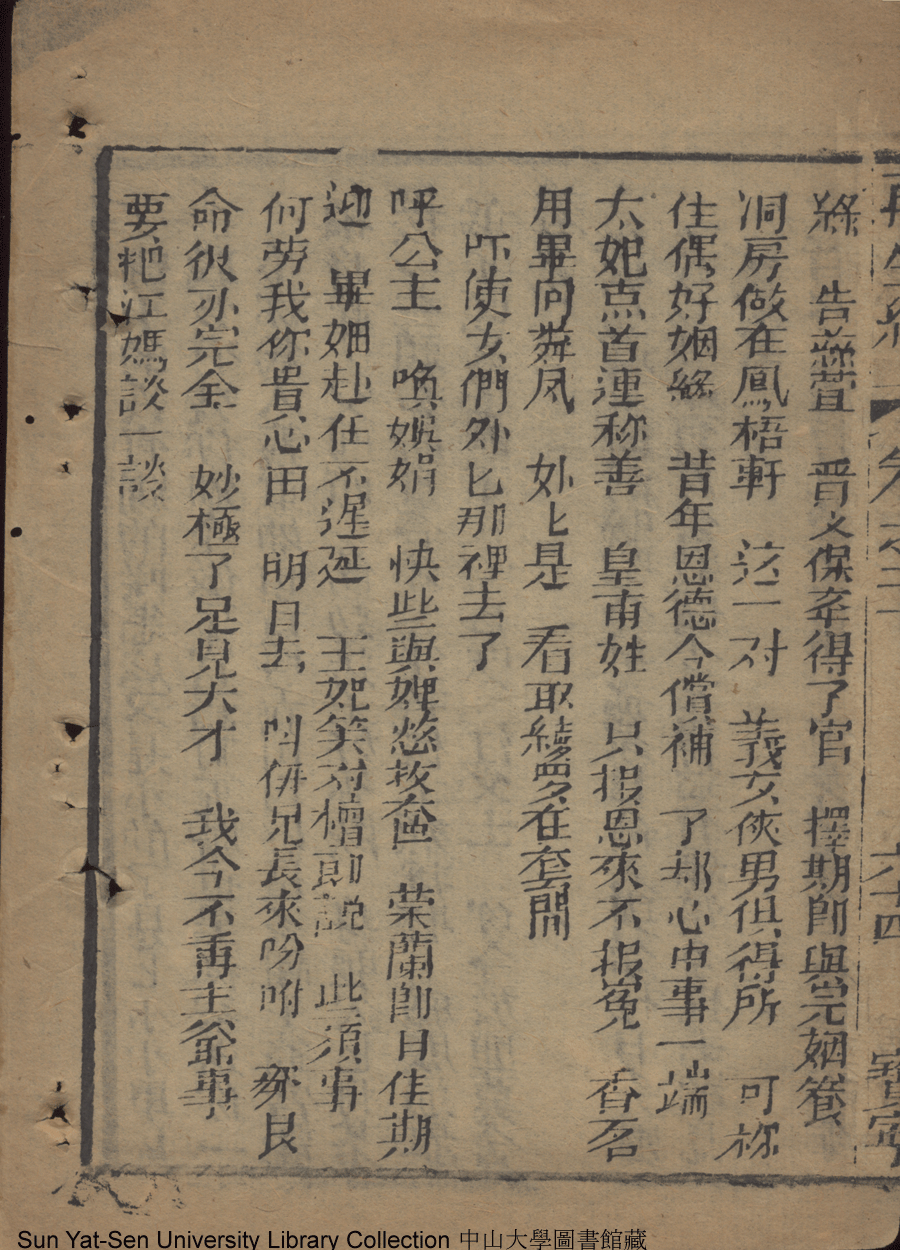 再生緣 卷之二 六十四 寶寧
緣 告慈萱 晋文保奏得了官 擇期即與完姻眷
洞房做在鳳梧軒 这一对 義女俠男俱得所 可称
住偶好姻緣 昔年恩德今償補 了却心中事一端
太妃点首連称善 皇甫姓 只报恩來不报冤 香茗
用畢向舞凤 妙匕是 看取綾罗在套間
吓使女們外匕那裡去了
呼公主 喚娯娟 快些與娌慈救奩 荣蘭即日佳期
迎 畢姻赴任不遲延 王妃笑对檀郎説 此須事
何劳我你貴心田 明日去 叫伊兄長來吩咐 郛艮
命很办完全 妙極了足見大才 我今不再主爺事
要把江媽談一談
Sun Yat-Sen University Library Collection 中山大學圖書館藏